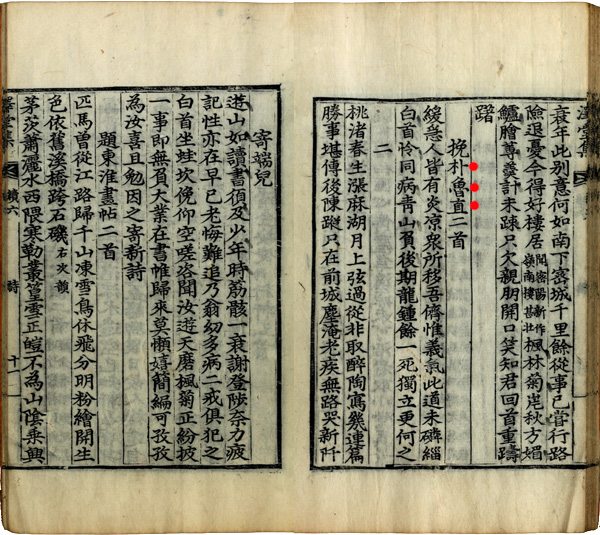 衰年此別意何如南下宻城千里餘從事已甞行路
險退憂今得好樓居聞密陽新作嶺南樓甚壯楓林菊岸秋方媚
鱸膾蓴羹計未踈只欠親朋開口笑知君回首重躊
躇
挽朴魯直二首
緩急人皆有炎凉衆所移吾儕惟義氣此道未磷緇
白首怜同病靑山負後期龍鍾餘一死獨立更何之
二
桃渚春生漲麻湖月上弦過從非取醉陶寫幾連篇
勝事堪傳後陳蹤只在前城塵淹老疾無路哭新阡
寄端兒
遊山如讀書須及少年時筋骸一衰謝登陟奈力疲
記性亦在早已老悔難追乃翁幼多病二戒俱犯之
白首坐蛙坎俛仰空嗟咨聞汝遊天磨楓菊正紛披
一事即無負大業在書帷歸來莫懶嬉簡編可孜孜
為汝喜且勉因之寄新詩
題東淮畫帖二首
匹馬曾從江路歸千山凍雪鳥休飛分明粉繪開生
色依舊溪橋跨石磯右次韻
茅茨蕭灑水西隈寒勒叢篁雪正皚不為山陰乘興
澤堂集 續六 詩 十一